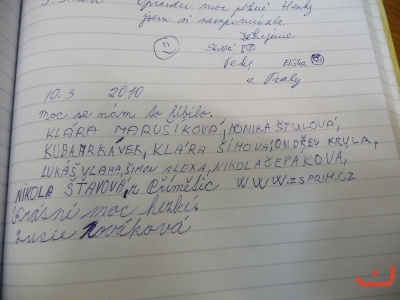 Opravdu moc pěkné. Hezky
jsem si zavzpomínala.
Děkujeme
Petr Eliška
a Prahy
10.3 2010
moc se nám to líbilo.
KLÁRA MARUŠÍKOVÁ, MONIKA ŠTULOVÁ,
KUBA MRKÁVEK, KLÁRA ŠÍMOVÁ, ONDŘEJ KRULA,
LUKÁŠ VLAHA, ŠIMON ALEXA, NIKOLA ČEPÁKOVÁ,
NIKOLA ŠŤÁVOVÁ, z Přímětic WWW.ZSPRIM.CZ
Krásné moc hezké.
Lucie